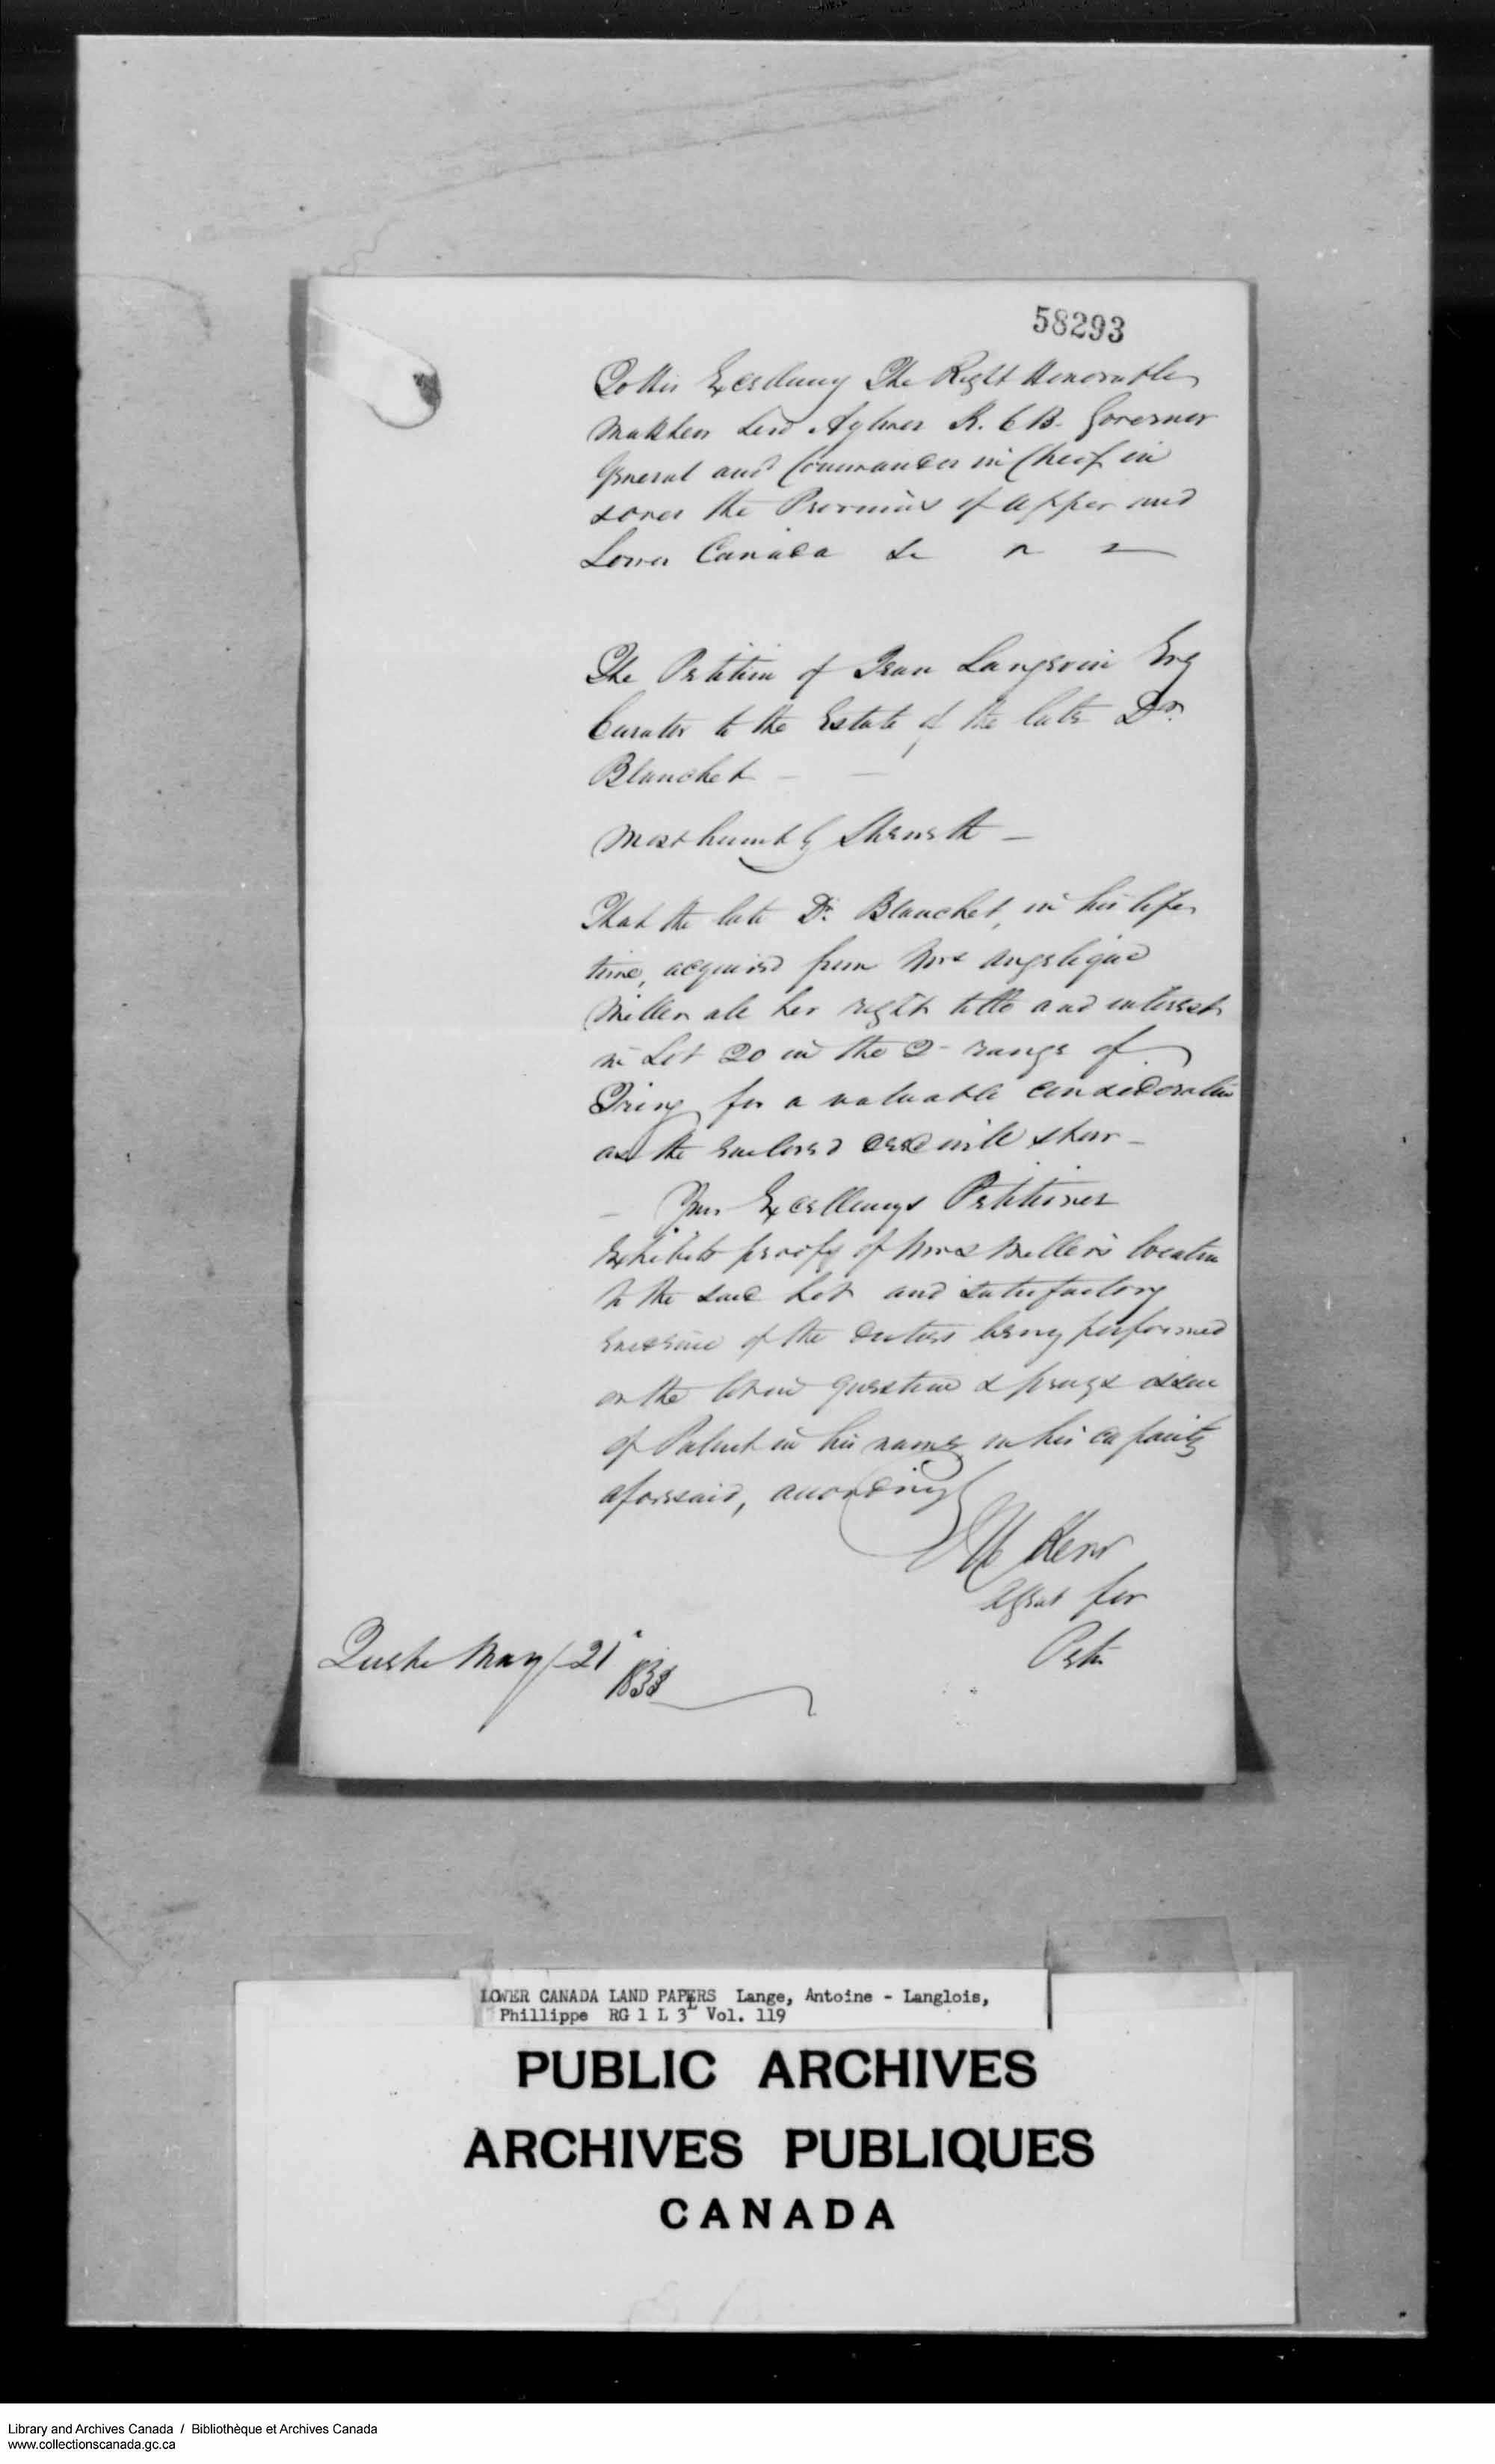 58293
To His Excellency The Right Honorable
Matthew Lord Aylmer K. C B. Governor
General and Commander in Cheif in
& over the Provinces of Upper and
Lower Canada &c
The Petition of Jean Langevin Esq
Curator to the Estate of the late Dr.
Blanchet
Most humbly Sheweth
That the late Dr. Blanchet, in his life
time, acquired from Mrs Angelique
Miller all her right title and interest
in Lot 20 in the 2d range of
Tring for a valuable consideration
as the enclosed deed will shew
Your Excellencys Petitioner
Exhibits proofs of Mrs Miller's location
to the said Lot and satisfactory
evidence of the duties being performed
on the lot in question & prays issue
of Patent in his name in his capacity
aforesaid, accordingly
Kerr
Agent for
Petr
Quebec May 21
1833
LOWER CANADA LAND PAPERS Lange, Antoine - Langlois,
Phillippe RG 1 L 3L Vol. 119
PUBLIC ARCHIVES
ARCHIVES PUBLIQUES
CANADA
Library and Archives Canada / Bibliothèque et Archives Canada
www.collectionscanada.gc.ca